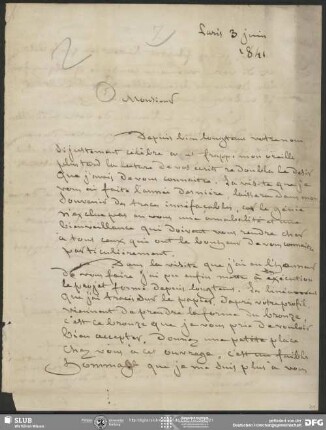 Paris 3 juin
1841
Monsieur
Depuis bien longtems votre nom
si justement célèbre a frappé mon oreille
plus tard la lecture de vos écrits redoubla le désir
que j'avais de vous connaitre. La visite que je
vous ai faite l'année dernière laissera dans mon
souvenir des traces ineffaçables, car le génie
n'a chez vous une amabilité et une
bienveillance qui doivent vous rendre cher
a tous ceux qui ont le bonheur de vous connaitre
particulièrement.
Dans la visite que j'ai eu l'honneur
de vous faire j'ai pu enfin mettre à exécution
le projet formé depuis longtems.
que j'ai tracé sur le papier d'après votre profil
viennent de prendre la forme du bronze,
c'est ce bronze que je vous prie de vouloir
bien accepter, donnez une petite place
chez vous a cet ouvrage, c'est un faible
hommage que je me suis plus a vous
SLUB
DFG